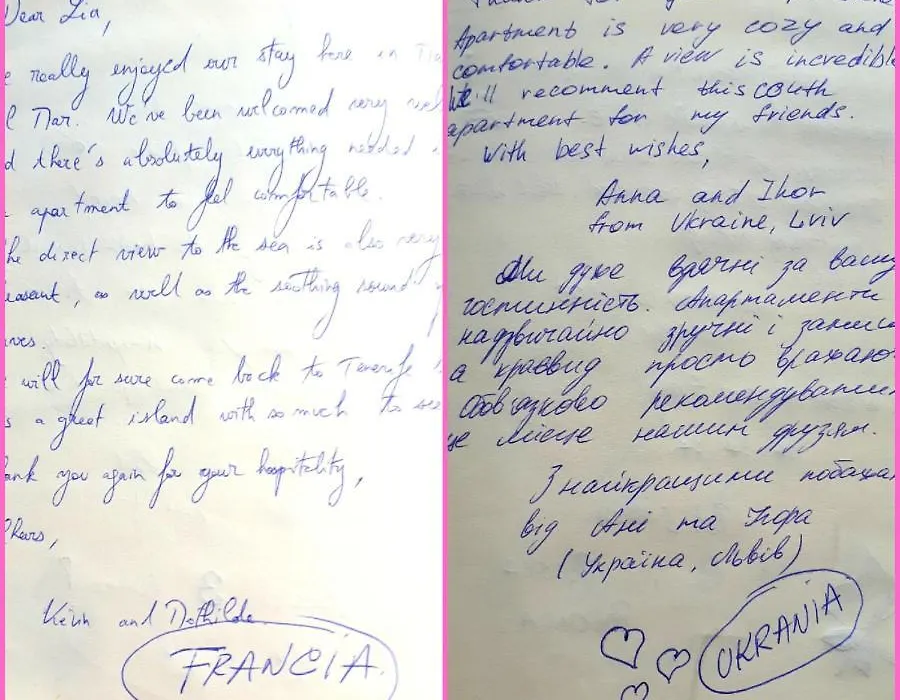 Dear Lia,
e really enjoyed our stay here in
l Mar. We've been welcomed very wel
d there's absolutely everything needed
apartment to feel comfortable.
he direct view to the sea is also very
easant, as well as the soothing sound
aves.
will for sure come back to Tenerife
s a great island with so much to see
ank you again for your hospitality,
Cheers,
Kévin and Mathilde
FRANCIA
Apartment is very cozy and
comfortable. A view is incredible
We'll recomment this couth
apartment for my friends.
With best wishes,
Anna and Ihor
from Ukraine, Lviv
Ми дуже вдячні за вашу
гостинність. Апартаменти
надзвичайно зручні і затиш
а краєвид просто вражаю
Обов'язково рекомендувати
це місце нашим друзям.
З найкращими побажа
від Ані та Ігора
(Україна, Львів)
UKRANIA